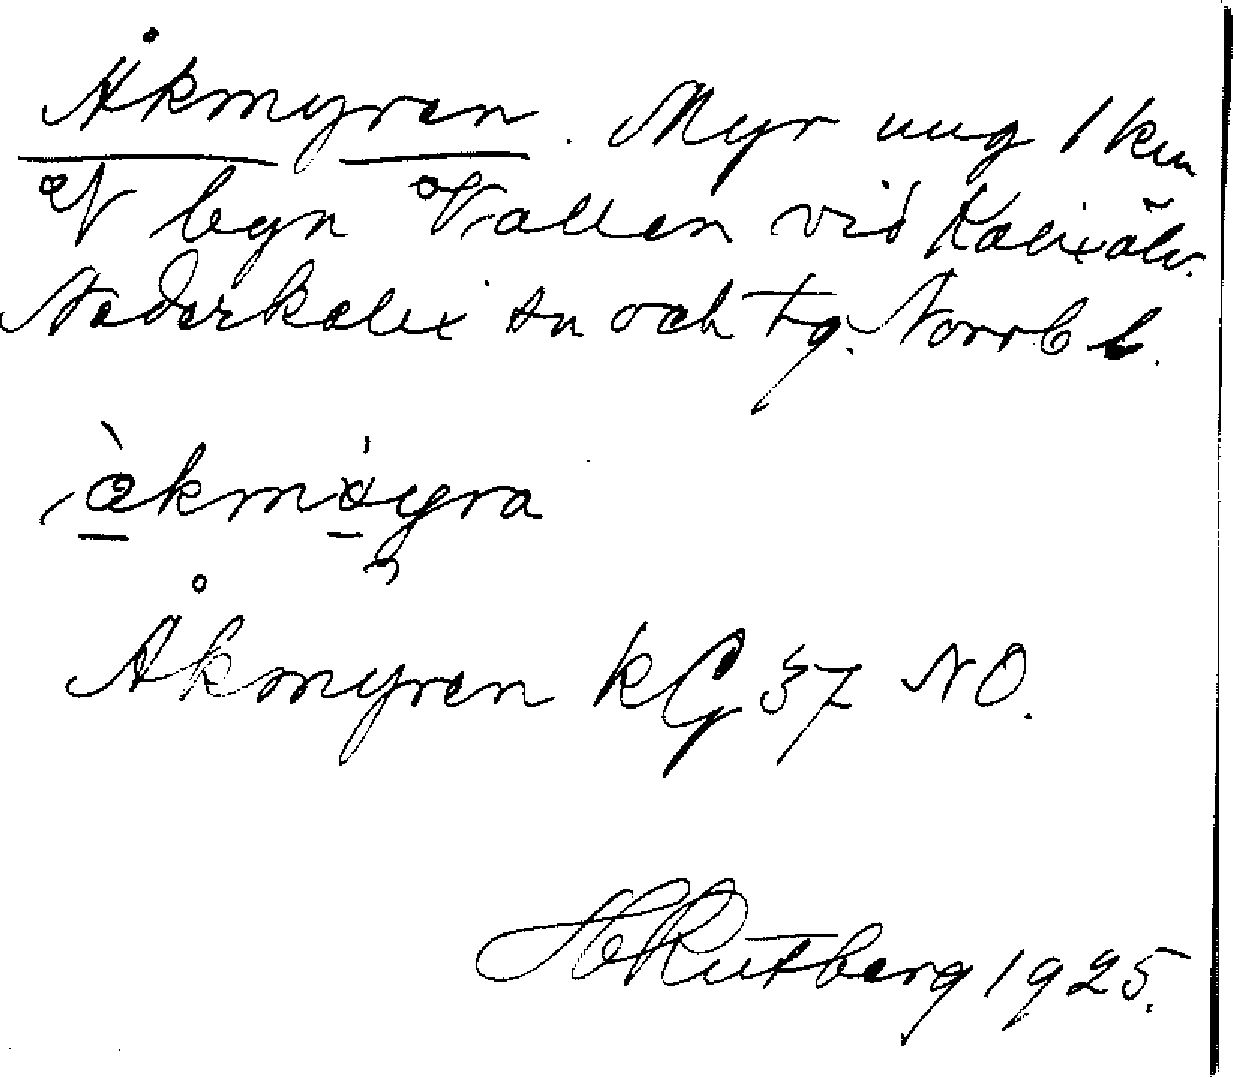 Åkmyren. Myr ung 1 km
V byn Vallen vid Kalixälv.
Nederkalix sn och tg. Norrb l.
Åkmyren kG 37 NO.
H Rutberg 1925.